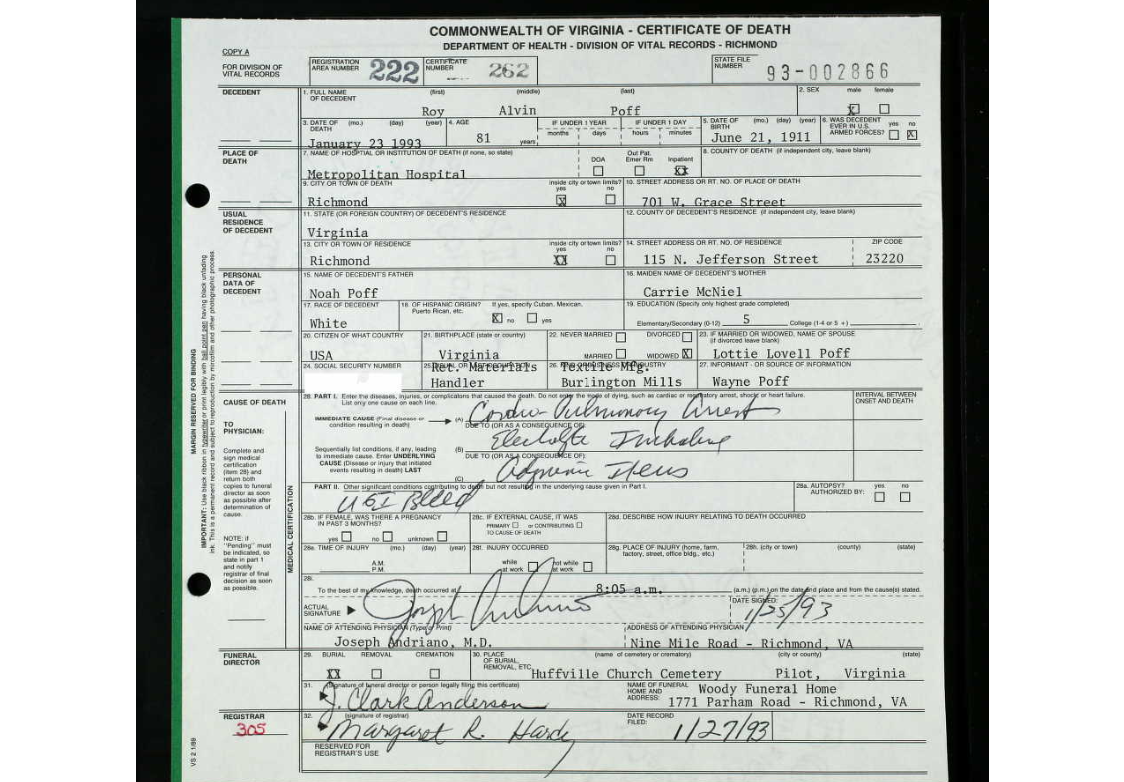 COMMONWEALTH OF VIRGINIA - CERTIFICATE OF DEATH
DEPARTMENT OF HEALTH - DIVISION OF VITAL RECORDS - RICHMOND
COPY A
FOR DIVISION OF VITAL RECORDS
REGISTRATION AREA NUMBER 222 CERTIFICATE NUMBER 262 STATE FILE NUMBER 93-002866
DECEDENT
1. FULL NAME OF DECEDENT (first) (middle) (last) 2. SEX male female
Roy Alvin Poff X
3. DATE OF DEATH (mo.) (day) (year) 4. AGE IF UNDER 1 YEAR IF UNDER 1 DAY 5. DATE OF BIRTH (mo.) (day) (year) 6. WAS DECEDENT EVER IN U.S. ARMED FORCES? yes no
months days hours minutes
January 23 1993 81 years June 21, 1911 X
PLACE OF DEATH
7. NAME OF HOSPITAL OR INSTITUTION OF DEATH (if none, so state) DOA Out Pat. Emer Rm Inpatient 8. COUNTY OF DEATH (if independent city, leave blank)
Metropolitan Hospital XX
9. CITY OR TOWN OF DEATH inside city or town limits? yes no 10. STREET ADDRESS OR RT. NO. OF PLACE OF DEATH
Richmond X 701 W. Grace Street
USUAL RESIDENCE OF DECEDENT
11. STATE (OR FOREIGN COUNTRY) OF DECEDENT'S RESIDENCE 12. COUNTY OF DECEDENT'S RESIDENCE (if independent city, leave blank)
Virginia
13. CITY OR TOWN OF RESIDENCE inside city or town limits? yes no 14. STREET ADDRESS OR RT. NO. OF RESIDENCE ZIP CODE
Richmond XX 115 N. Jefferson Street 23220
PERSONAL DATA OF DECEDENT
15. NAME OF DECEDENT'S FATHER 16. MAIDEN NAME OF DECEDENT'S MOTHER
Noah Poff Carrie McNiel
17. RACE OF DECEDENT 18. OF HISPANIC ORIGIN? If yes, specify Cuban, Mexican, Puerto Rican, etc. 19. EDUCATION (Specify only highest grade completed)
White X no yes Elementary/Secondary (0-12) 5 College (1-4 or 5 +)
20. CITIZEN OF WHAT COUNTRY 21. BIRTHPLACE (state or country) 22. NEVER MARRIED DIVORCED 23. IF MARRIED OR WIDOWED, NAME OF SPOUSE (if divorced leave blank)
USA Virginia MARRIED WIDOWED X Lottie Lovell Poff
24. SOCIAL SECURITY NUMBER Ret. Materials Textile Mfg. 27. INFORMANT - OR SOURCE OF INFORMATION
Handler Burlington Mills Wayne Poff
CAUSE OF DEATH
28. PART I. Enter the diseases, injuries, or complications that caused the death. Do not enter the mode of dying, such as cardiac or respiratory arrest, shock or heart failure. List only one cause on each line. INTERVAL BETWEEN ONSET AND DEATH
TO PHYSICIAN:
Complete and sign medical certification (item 28) and return both copies to funeral director as soon as possible after determination of cause.
NOTE: if "Pending" must be indicated, so state in part 1 and notify registrar of final decision as soon as possible.
IMMEDIATE CAUSE (Final disease or condition resulting in death) (A) Cardio Pulmonary Arrest
DUE TO (OR AS A CONSEQUENCE OF):
Sequentially list conditions, if any, leading to immediate cause. Enter UNDERLYING CAUSE (Disease or injury that initiated events resulting in death) LAST
(B) Electrolyte Imbalance
DUE TO (OR AS A CONSEQUENCE OF):
(C) Adynamic Ileus
PART II. Other significant conditions contributing to death but not resulting in the underlying cause given in Part I. 28a. AUTOPSY? AUTHORIZED BY: yes no
UGI Bleed
MEDICAL CERTIFICATION
28b. IF FEMALE, WAS THERE A PREGNANCY IN PAST 3 MONTHS? yes no unknown 28c. IF EXTERNAL CAUSE, IT WAS PRIMARY or CONTRIBUTING TO CAUSE OF DEATH 28d. DESCRIBE HOW INJURY RELATING TO DEATH OCCURRED
28e. TIME OF INJURY (mo.) (day) (year) A.M. P.M. 28f. INJURY OCCURRED while at work not while at work 28g. PLACE OF INJURY (home, farm, factory, street, office bldg., etc.) 28h. (city or town) (county) (state)
28i. To the best of my knowledge, death occurred at 8:05 a.m. (a.m.) (p.m.) on the date and place and from the cause(s) stated.
ACTUAL SIGNATURE Joseph DATE SIGNED:
NAME OF ATTENDING PHYSICIAN (Type or Print) ADDRESS OF ATTENDING PHYSICIAN
Joseph Andriano, M.D. Nine Mile Road - Richmond, VA
FUNERAL DIRECTOR
29. BURIAL REMOVAL CREMATION 30. PLACE OF BURIAL, REMOVAL, ETC. (name of cemetery or crematory) (city or county) (state)
XX Huffville Church Cemetery Pilot, Virginia
31. (signature of funeral director or person legally filing this certificate) NAME OF FUNERAL HOME AND ADDRESS: Woody Funeral Home
J. Clark Anderson 1771 Parham Road - Richmond, VA
REGISTRAR
305
32. (signature of registrar) DATE RECORD FILED:
Margaret R. 1/27/93
RESERVED FOR REGISTRAR'S USE
VS 2 1/89
MARGIN RESERVED FOR BINDING